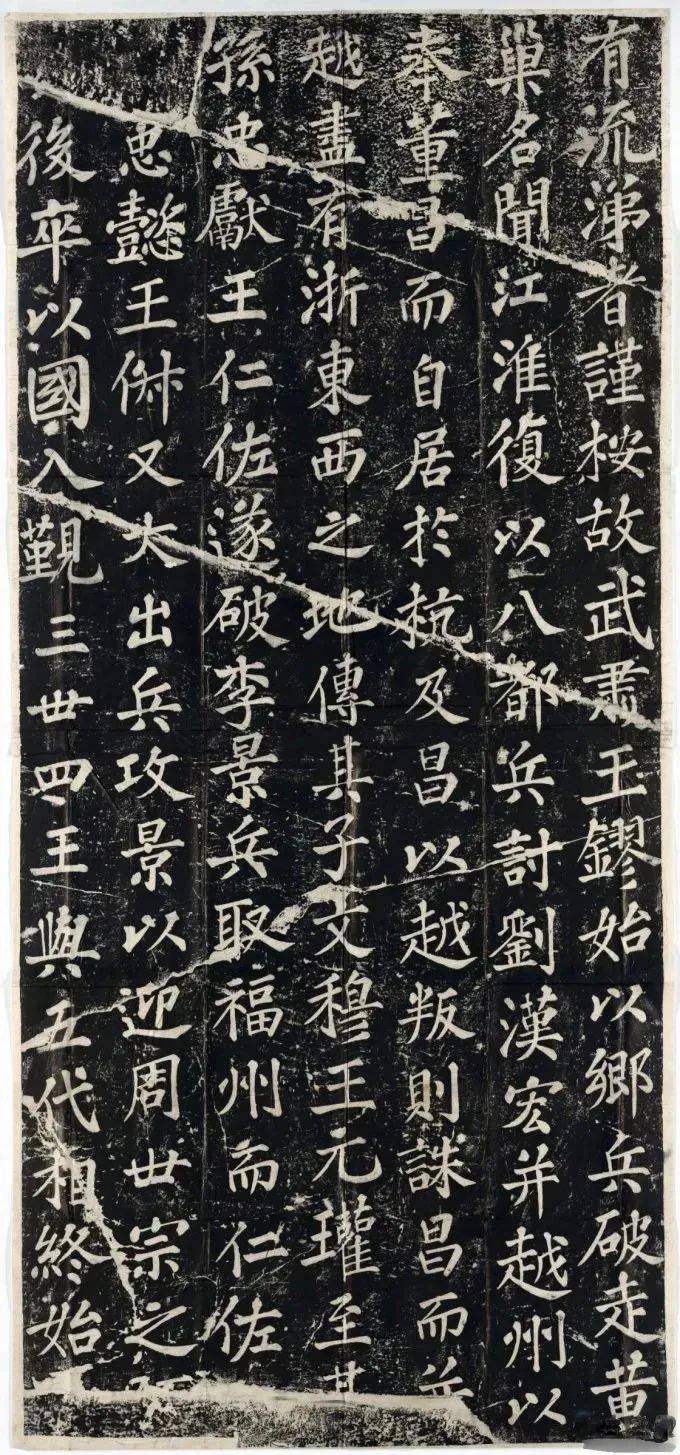 有流涕者謹按故武肅王鏐始以鄉兵破走黄
巢名聞江淮復以八都兵討劉漢宏并越州以
奉董昌而自居於杭及昌以越叛則誅昌而
越盡有浙東西之地傳其子文穆王元瓘至其
孫忠獻王仁佐遂破李景兵取福州而仁佐
忠懿王俶又大出兵攻景以迎周世宗之
後卒以國入覲三世四王與五代相終始